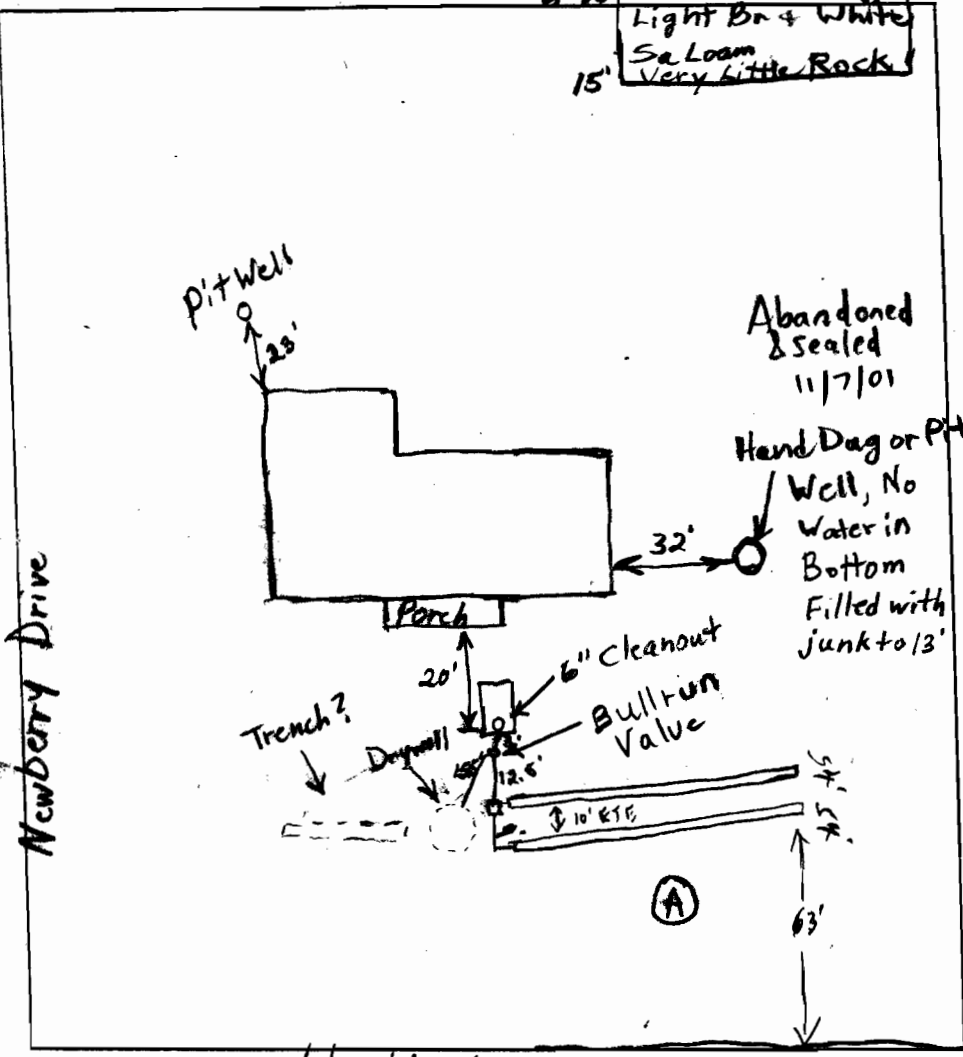 Light Bn & White
Sa Loam
Very Little Rock
15'
Pit Well
23'
Abandoned
& Sealed
11/7/01
Hand Dug or Pit
Well, No
Water in
Bottom
Filled with
junk to 13'
32'
Porch
20'
6" Cleanout
Bullrun
Valve
Trench?
Drywell
12.5'
10' ETE
54'
54'
A
63'
Newberry Drive